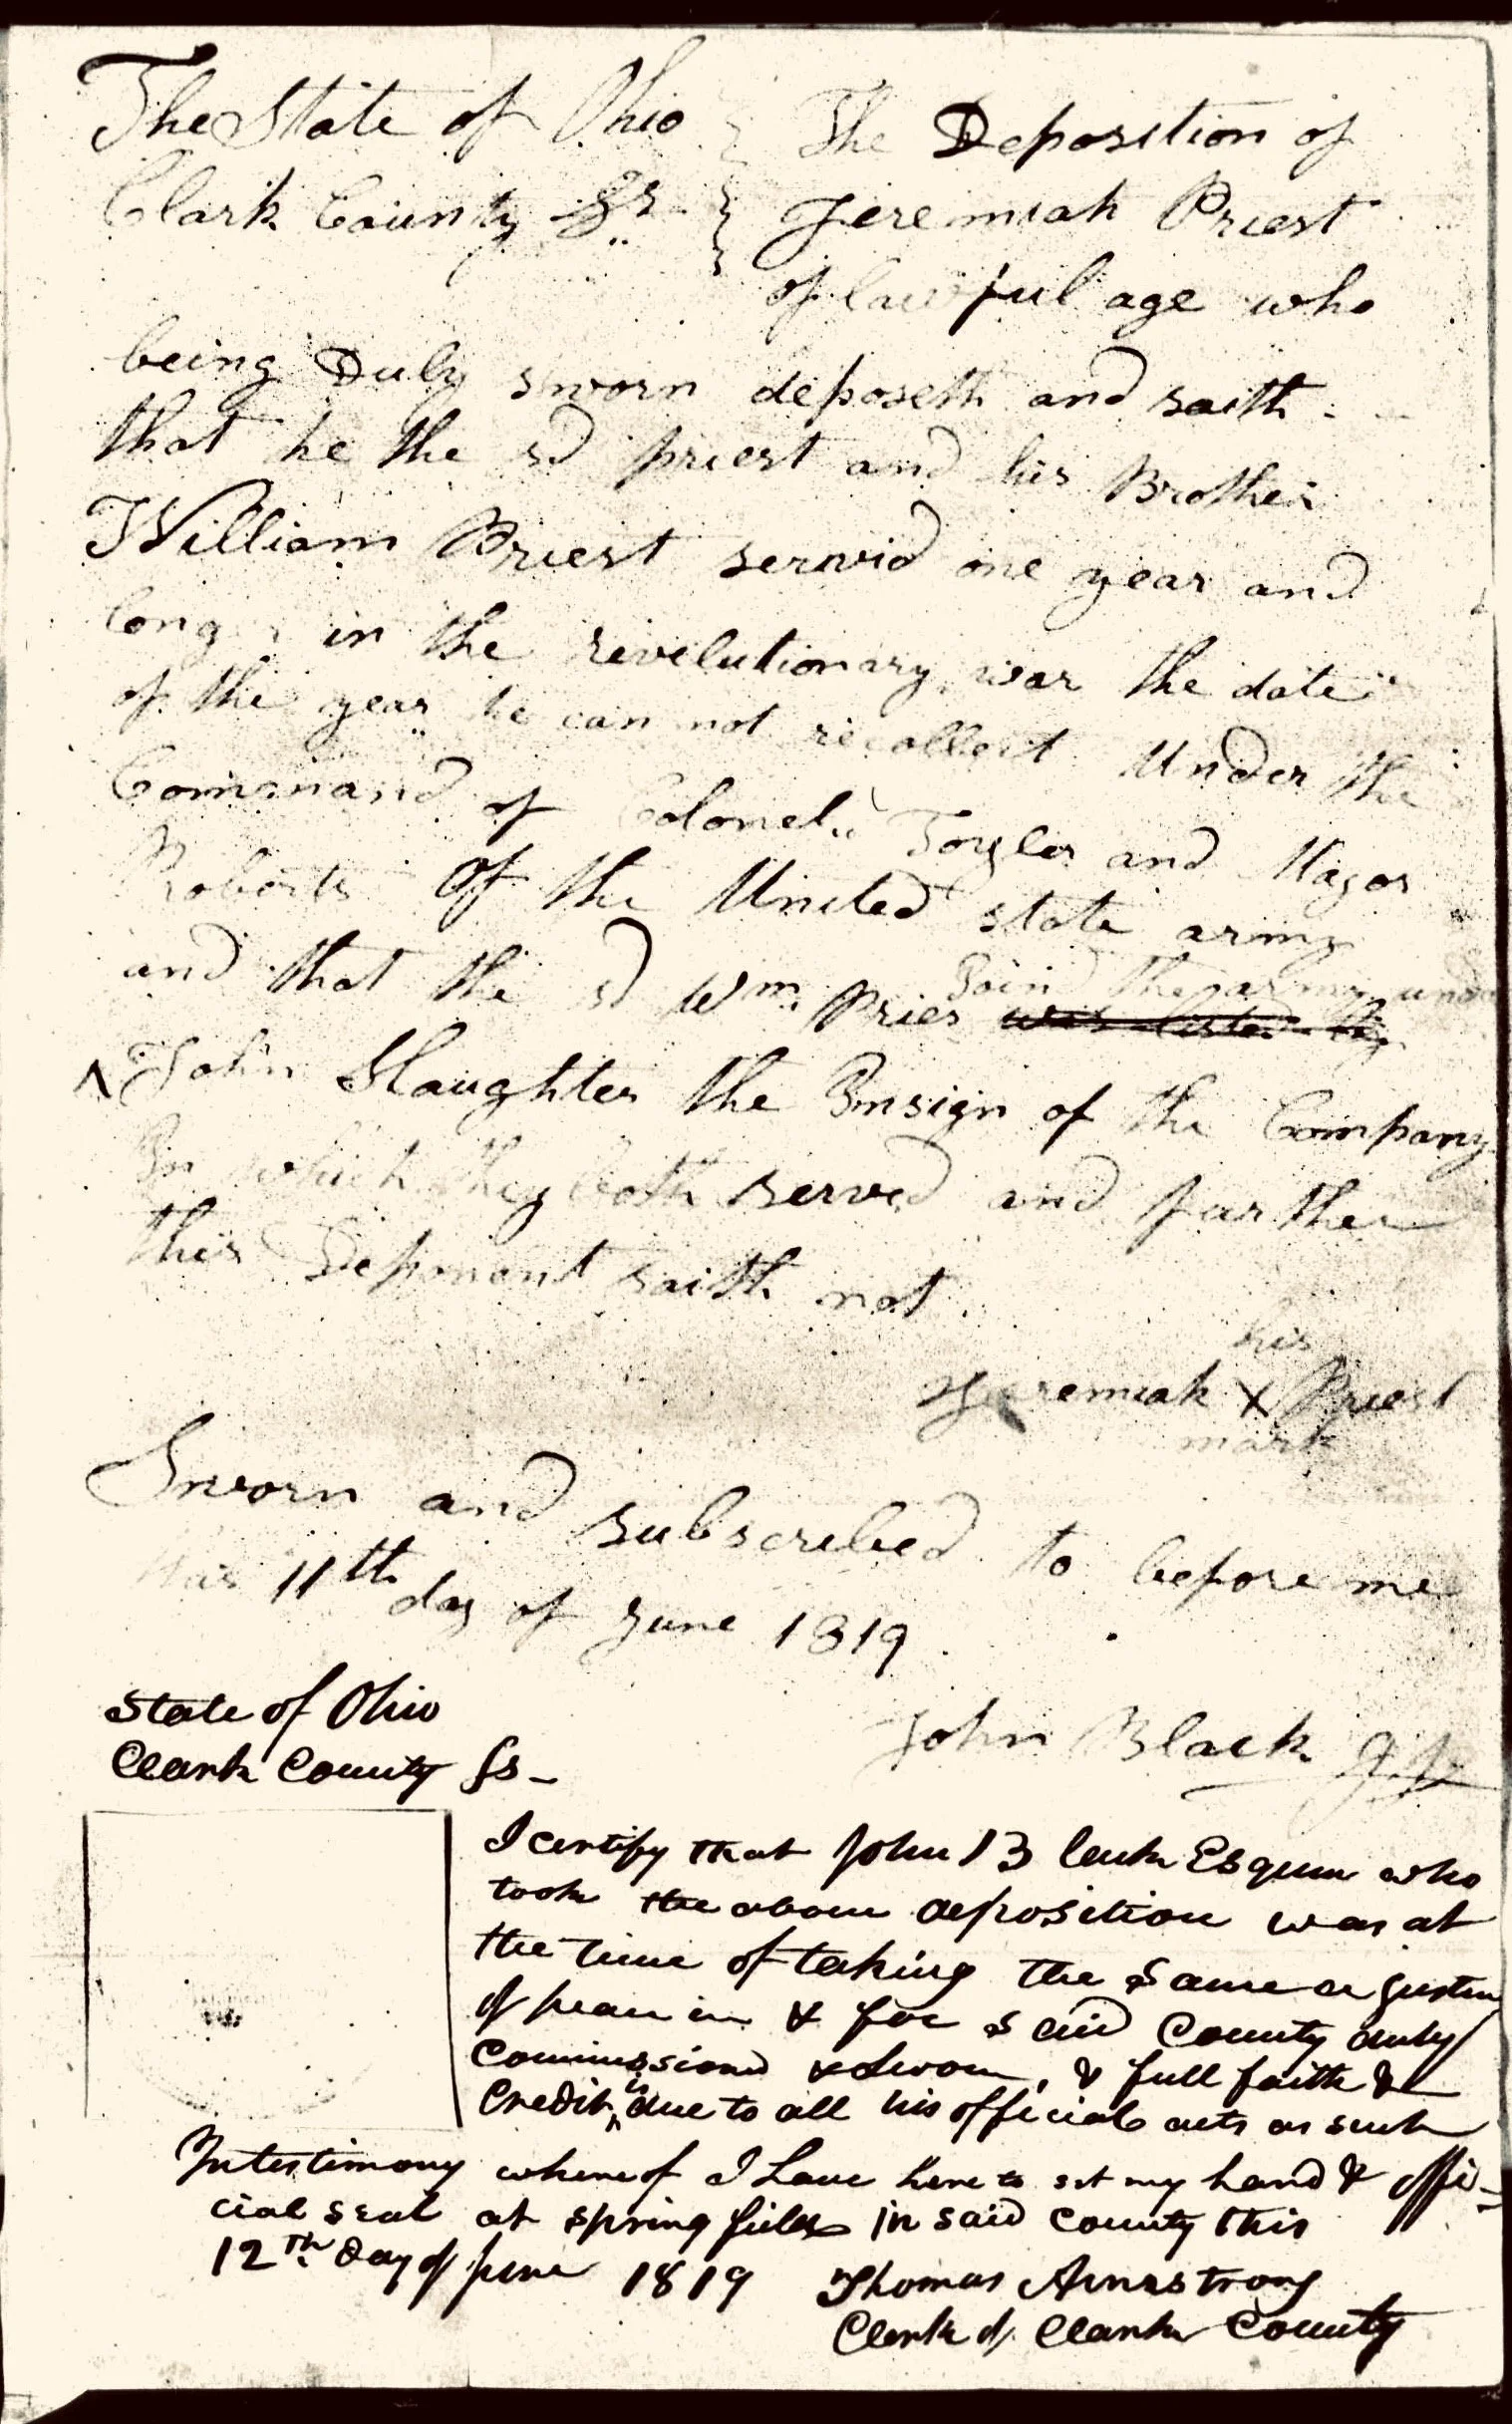 The State of Ohio } The Deposition of
Clark County Ss } Jeremiah Priest
of lawful age who
being Duly sworn deposeth and saith
that he the sd priest and his Brother
William Priest servid one year and
long in the revelutionary war the date
of the year he can not recollect Under the
Command of Colonel Toyler and Major
Roberts Of the United state army
Join the army und
and that the sd Wm Pries was listed by
^ John Slaughter the Ensign of the Company
In which they both served and farther
this Deponent saith not.
his
Jeremiah X Priest
mark
Sworn and subscribed to before me
this 11th day of June 1819
John Black J.P.
State of Ohio
Clark County Ss-
I certify that John Black Esquire who
took the above deposition was at
the time of taking the same a Justice
of peace in & for said County duly
Commissiond & sworn, & full faith &
is
Credit ^ due to all his official acts as such
In testimony whereof I have here to set my hand & offi=
cial seal at Springfield in said County this
12th Day of June 1819 Thomas Armstrong
Clerk of Clark County